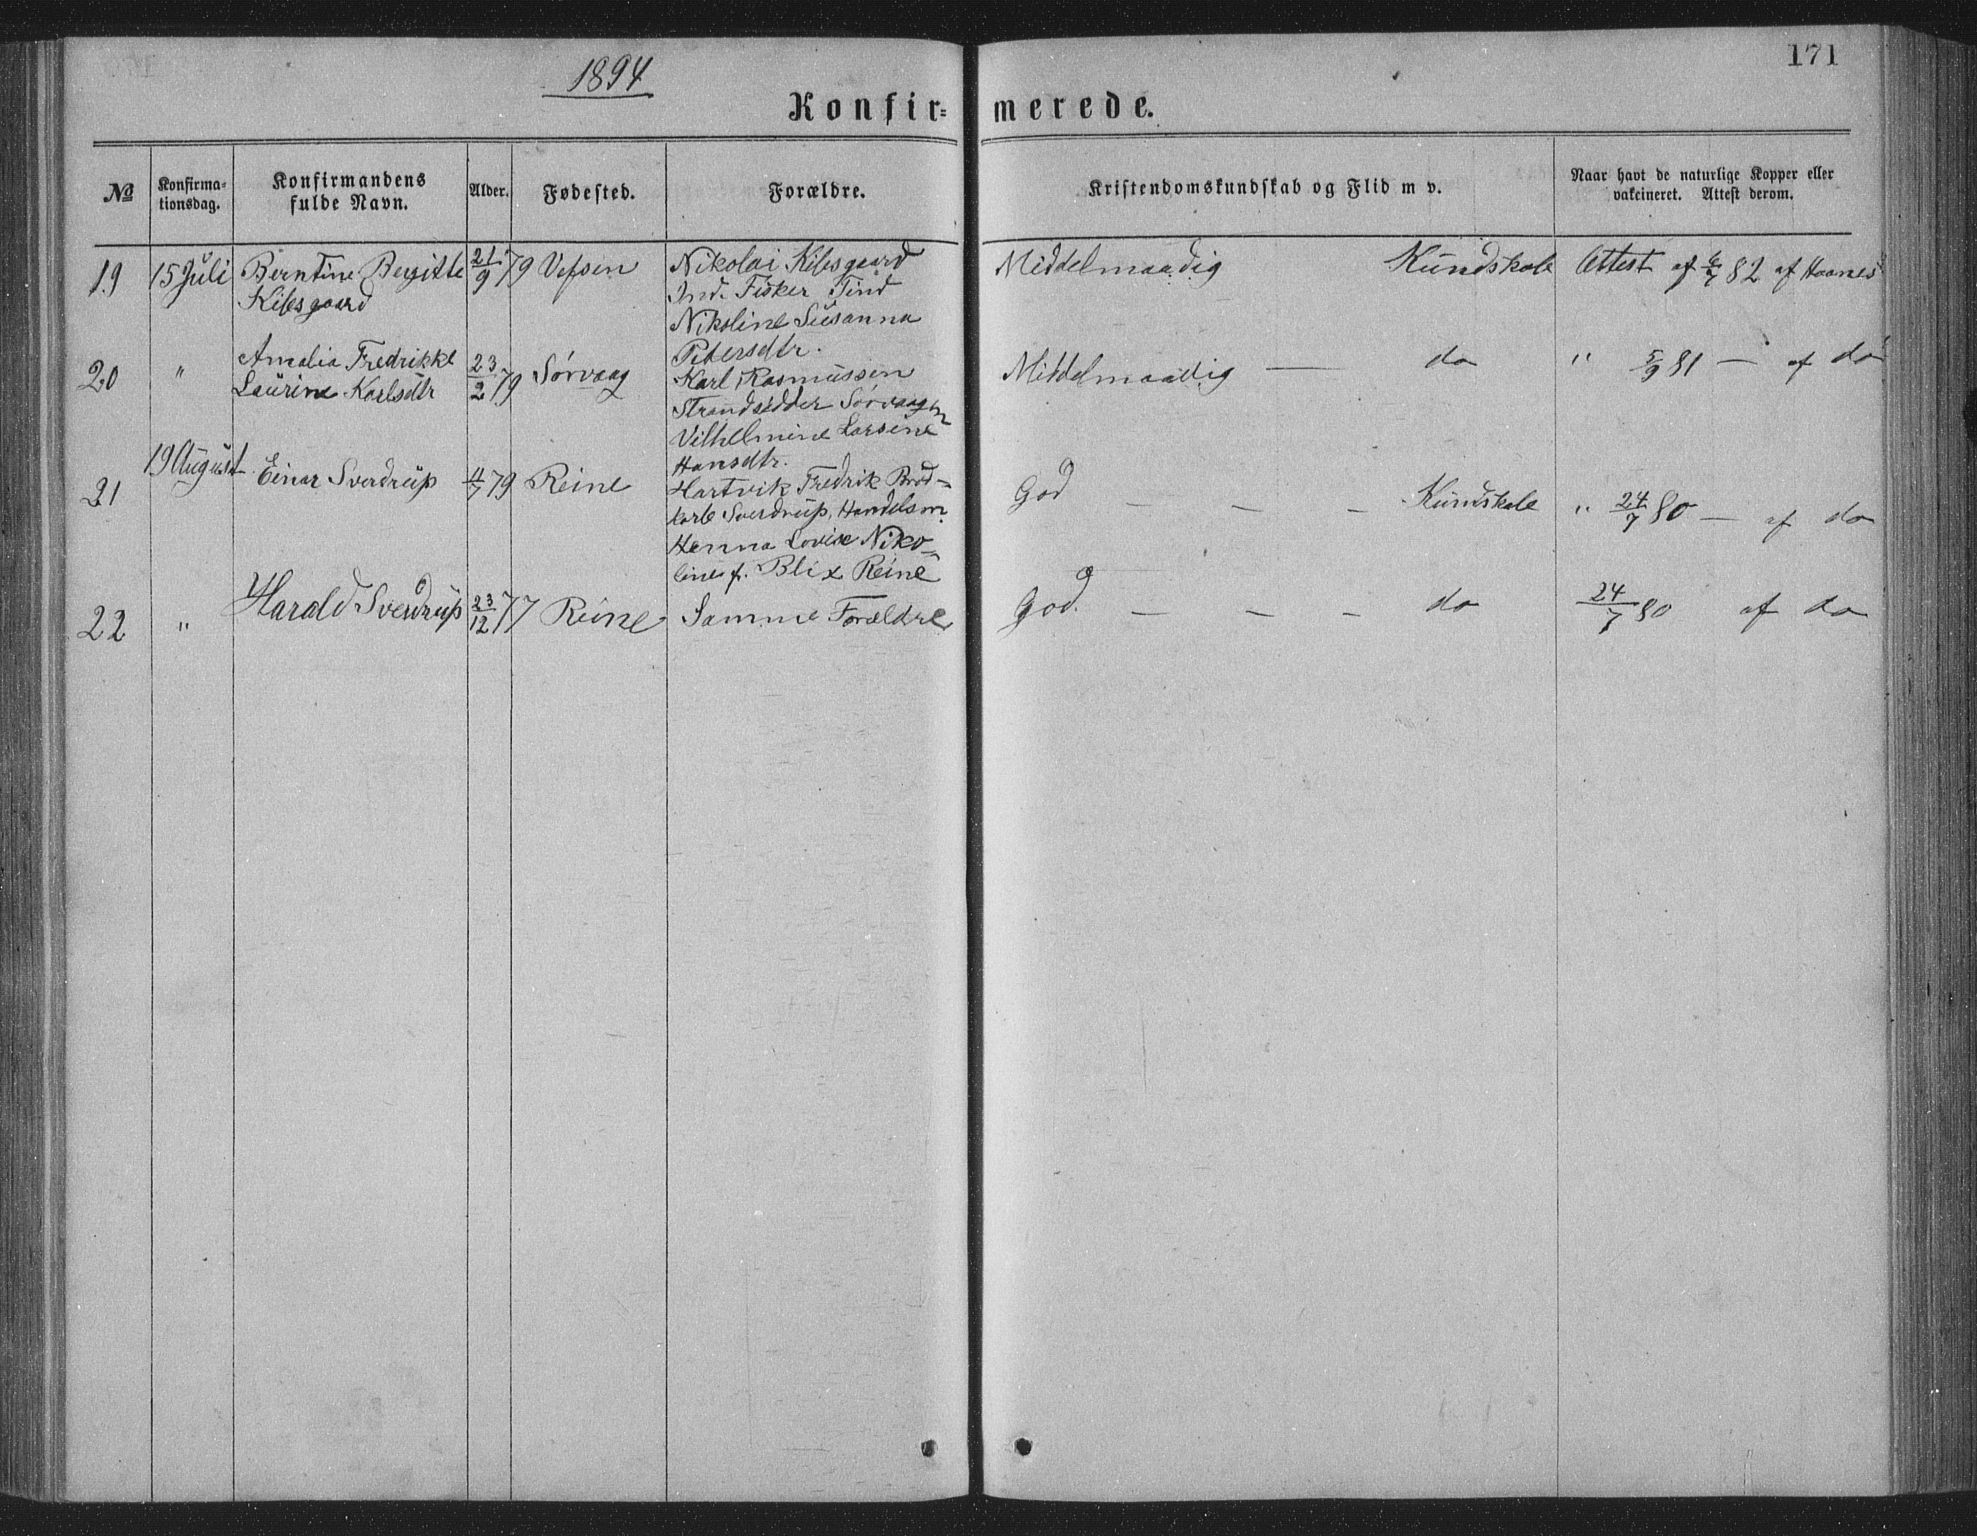 1894
171
Konfir=merede.
№ Konfirma-tionsdag. Konfirmandens fulde Navn. Alder. Fødested. Forældre. Kristendomskundskab og Flid m v. Naar havt de naturlige Kopper eller vakcineret. Attest derom.
19 15 Juli Berntine Bergitte 21/9 79 Vefsen Nikolai Kibsgaard Middelmaadig Kundskab Attest af 6/7 82 af Haanes
Kibsgaard Ind. Fisker Tind
Nikoline Susanna
Petersdtr.
20 " Amalia Fredrikke 23/2 79 Sørvaag Karl Rasmussen Middelmaadig — do " 5/9 81 — af do
Laurine Karlsdtr Strandsidder Sørvaagen
Vilhelmine Larsine
Hansdtr.
21 19 August Einar Sverdrup 11/7 79 Reine Hartvik Fredrik Brod- God — — — Kundskab " 24/7 80 — af do
korb Sverdrup, Handelsm.
Henna Lovise Niko-
line f. Blix Reine
22 " Harald Sverdrup 23/12 77 Reine Samme Forældre God. — — — do 24/7 80 af do